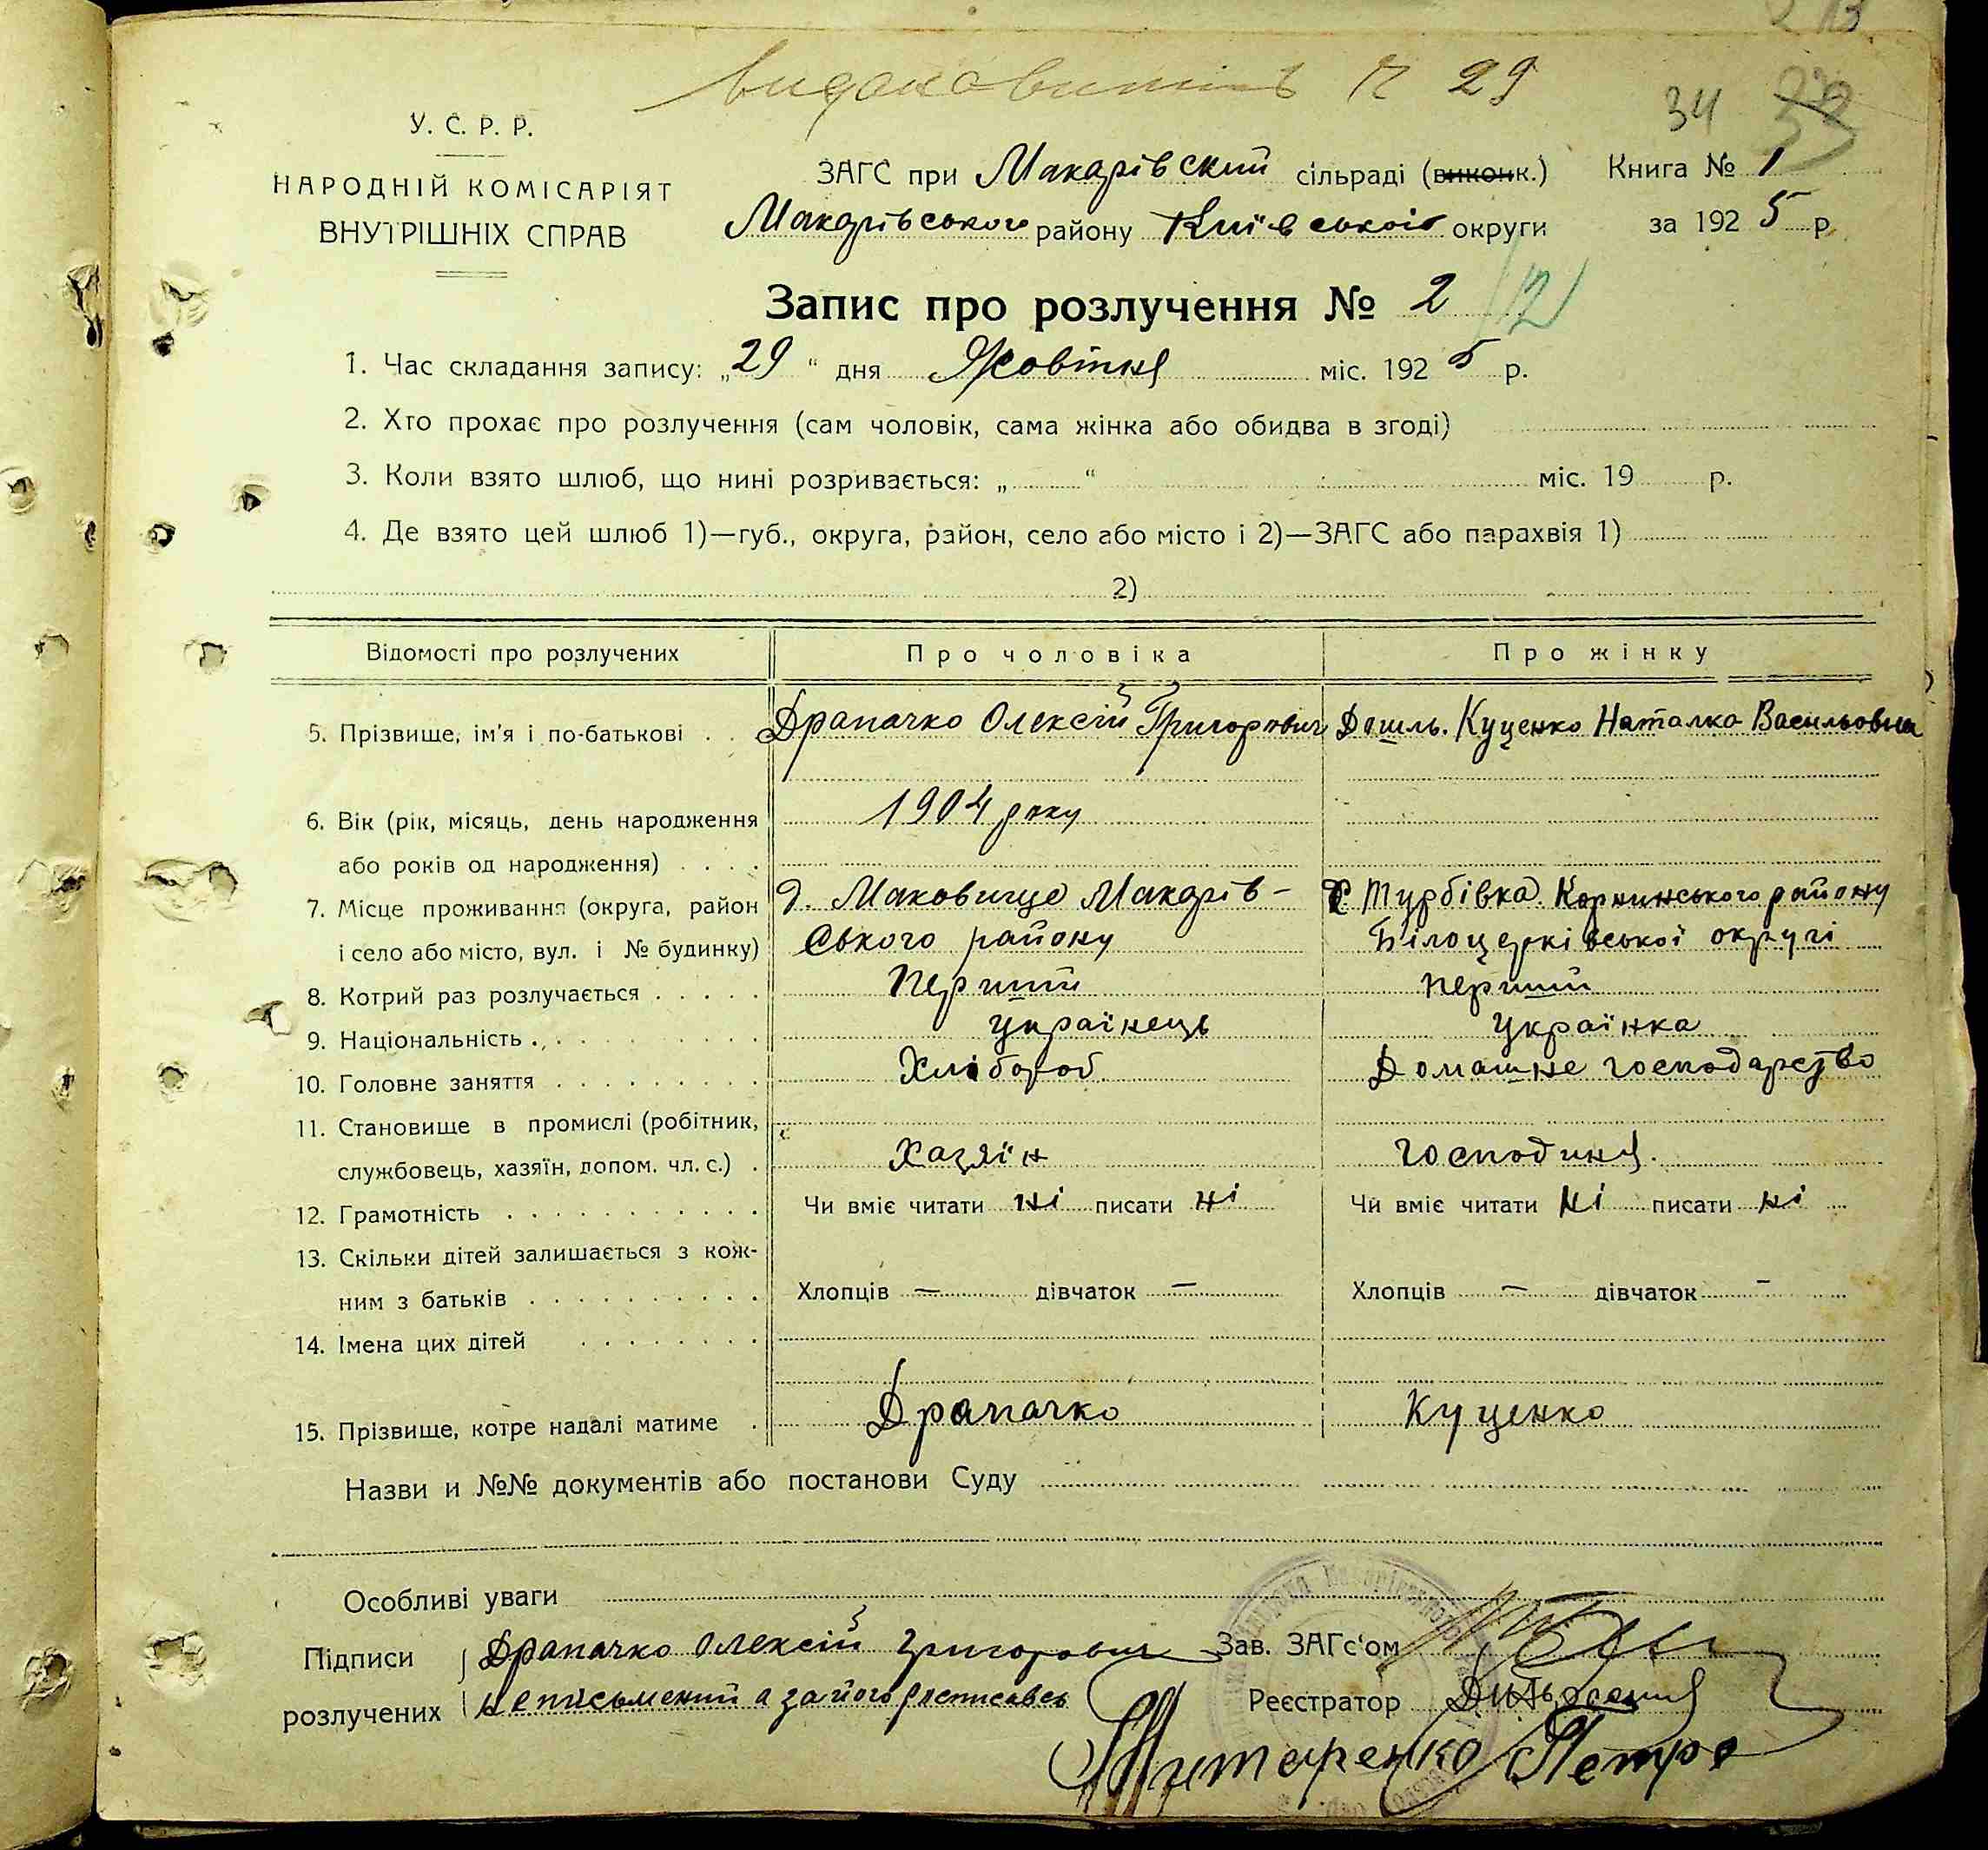 29
34
У. С. Р. Р.
НАРОДНІЙ КОМІСАРІЯТ
ВНУТРІШНІХ СПРАВ
ЗАГС при Макарівский сільраді (виконк.) Книга № 1
Макарівського району Київськоі округи за 1925 р.
Запис про розлучення № 2
1. Час складання запису: „29“ дня Жовтня міс. 1925 р.
2. Хто прохає про розлучення (сам чоловік, сама жінка або обидва в згоді)
3. Коли взято шлюб, що нині розривається: „ “ міс. 19 р.
4. Де взято цей шлюб 1)—губ., округа, район, село або місто і 2)—ЗАГС або парахвія 1)
2)
Відомості про розлучених Про чоловіка Про жінку
5. Прізвище, ім'я і по-батькові . . Драпачко Олексій Григорович Дошль. Куценко Наталка Васильовна
6. Вік (рік, місяць, день народження 1904 року
або років од народження) . . . .
7. Місце проживання (округа, район д. Маковище Макарів- с Турбівка Корнинського району
і село або місто, вул. і № будинку) ського району Білоцерківської округі
8. Котрий раз розлучається . . . . . Перший перший
9. Національність . . . . . . . . . українець українка
10. Головне заняття . . . . . . . . . Хлібороб Домашне господарство
11. Становище в промислі (робітник,
службовець, хазяїн, допом. чл. с.) . Хазяїн господиня.
12. Грамотність . . . . . . . . . . . Чи вміє читати ні писати ні Чи вміє читати ні писати ні
13. Скільки дітей залишається з кож-
ним з батьків . . . . . . . . . . Хлопців — дівчаток — Хлопців — дівчаток -
14. Імена цих дітей . . . . . . . .
15. Прізвище, котре надалі матиме . Драпачко Куценко
Назви и №№ документів або постанови Суду
Особливі уваги
Підписи Драпачко Олексій Григорович Зав. ЗАГс'ом
розлучених неписьмений а за його росписавсь Реєстратор
Титаренко Петро